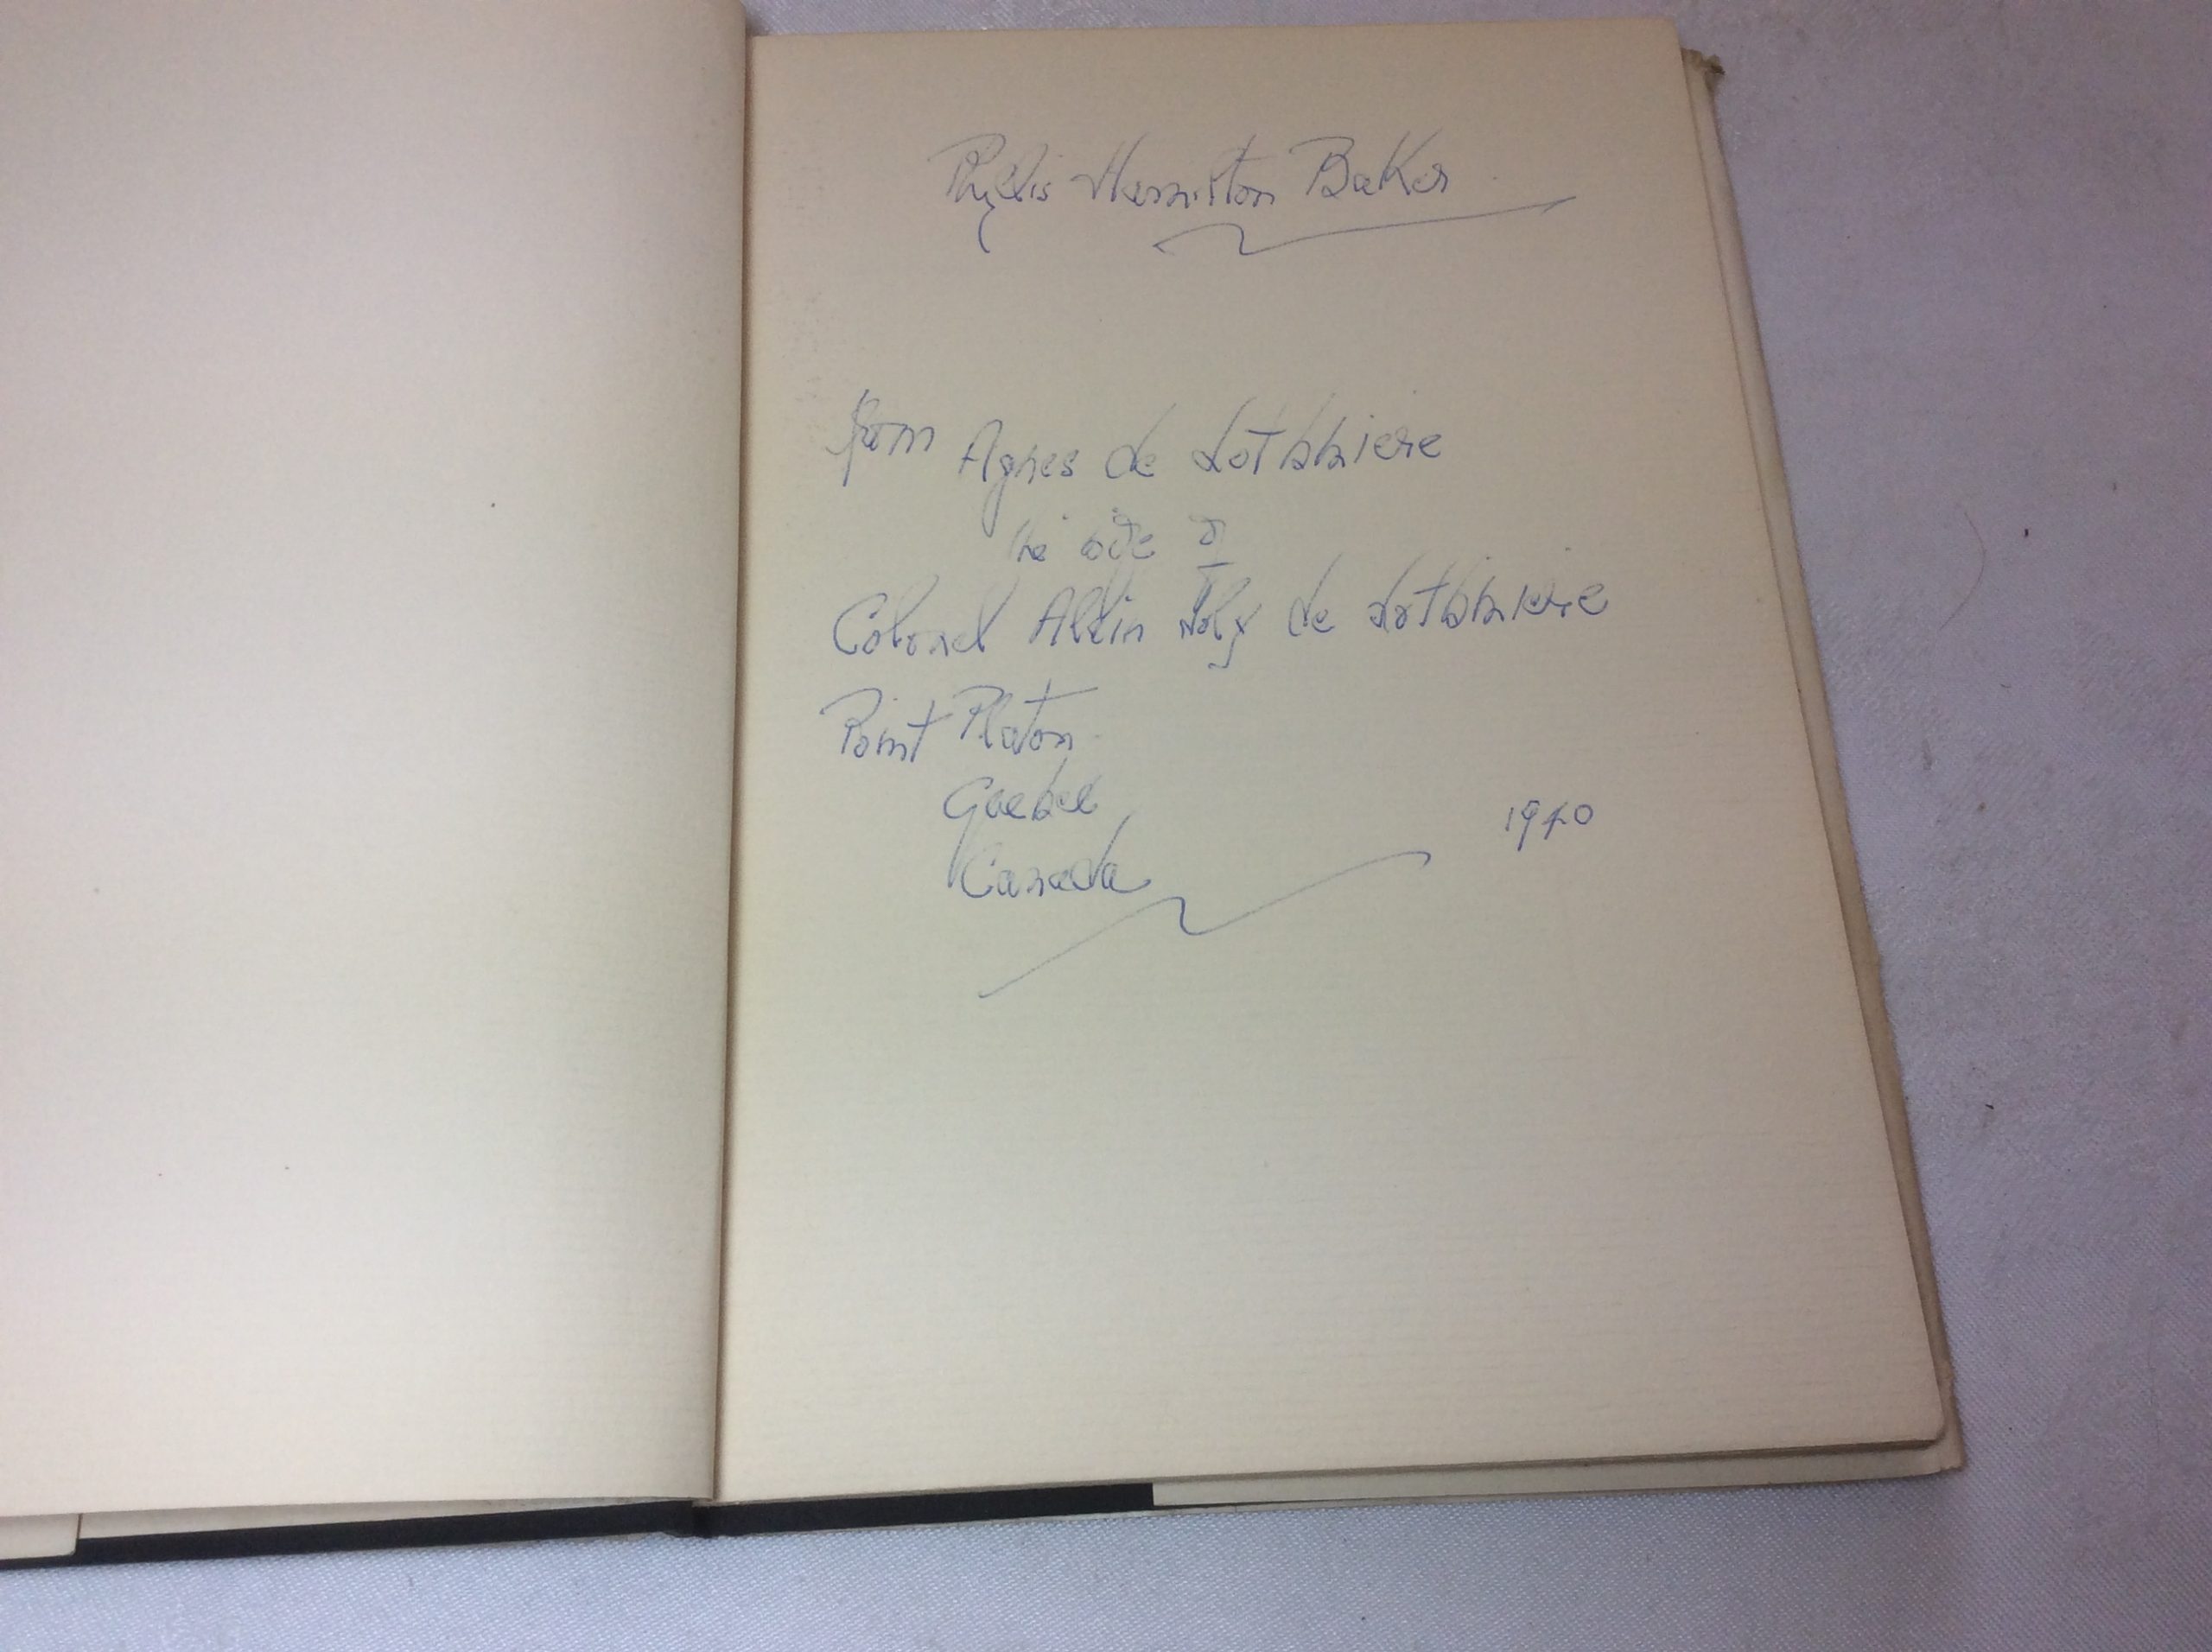 Phyllis Hamilton Baker
from Agnes de Lotbiniere
the wife of
Colonel Alain Joly de Lotbiniere
Point Platon
Quebec
Canada